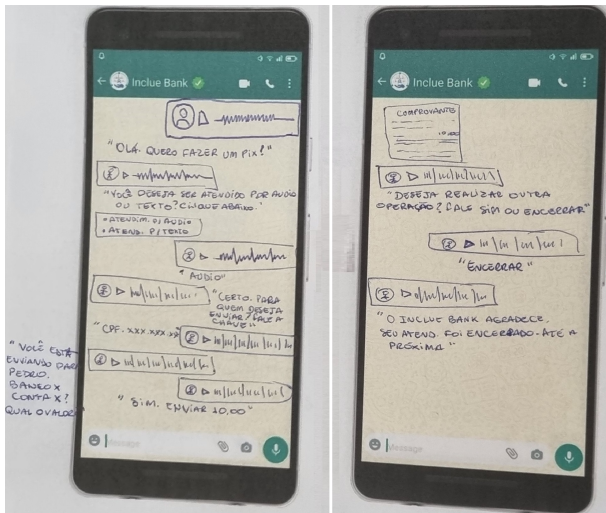 Inclue Bank
"OLÁ. QUERO FAZER UM PIX!"
"VOCÊ DESEJA SER ATENDIDO POR AUDIO
OU TEXTO? CLIQUE ABAIXO."
• ATENDIM. P/AUDIO
• ATEND. P/TEXTO
"AUDIO"
"CERTO. PARA
QUEM DESEJA
ENVIAR? FALE A
CHAVE"
"CPF. XXX.XXX.XX
"VOCÊ ESTÁ
ENVIANDO PARA
PEDRO.
BANCO X
CONTA X?
QUAL O VALOR
"SIM. ENVIAR 10,00"
Message
Inclue Bank
COMPROVANTE
10,00
"DESEJA REALIZAR OUTRA
OPERAÇÃO? FALE SIM OU ENCERRAR"
"ENCERRAR"
"O INCLUE BANK AGRADECE.
SEU ATEND. FOI ENCERRADO. ATÉ A
PRÓXIMA"
Message